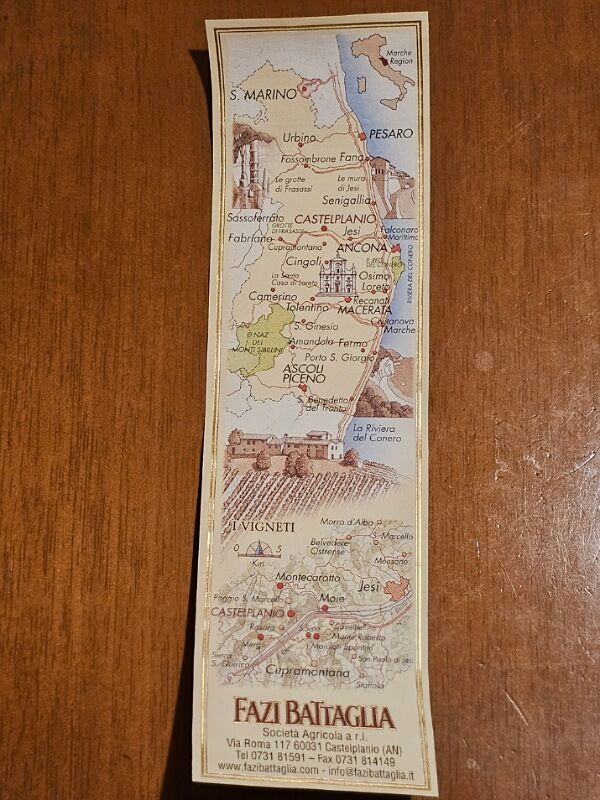 Marche
Region
S. MARINO
PESARO
Urbino
Fossombrone
Fano
Le grotte
di Frasassi
Le mura
di Jesi
Senigallia
Sassoferrato
CASTELPLANIO
GROTTE
DI FRASASSI
Jesi
Falconara
Marittima
Fabriano
Cupramontana
ANCONA
Cingoli
RIVIERA DEL CONERO
La Santa
Casa di Loreto
Osimo
Loreto
Camerino
Recanati
Tolentino
MACERATA
S. Ginesio
Civitanova
Marche
P. NAZ.
DEI
MONTI SIBILLINI
Amandola
Fermo
Porto S. Giorgio
ASCOLI
PICENO
S. Benedetto
del Tronto
La Riviera
del Conero
I VIGNETI
Morro d'Alba
0 5
Km
Belvedere
Ostrense
S. Marcello
Monsano
Montecarotto
Jesi
Poggio S. Marcello
Moie
CASTELPLANIO
Rosora
Castelbellino
Monte Roberto
Mergo
Maiolati Spontini
Serra
S. Quirico
San Paolo di Jesi
Cupramontana
Staffolo
FAZI BATTAGLIA
Società Agricola a r.l.
Via Roma 117 60031 Castelplanio (AN)
Tel 0731 81591 – Fax 0731 814149
www.fazibattaglia.com - info@fazibattaglia.it